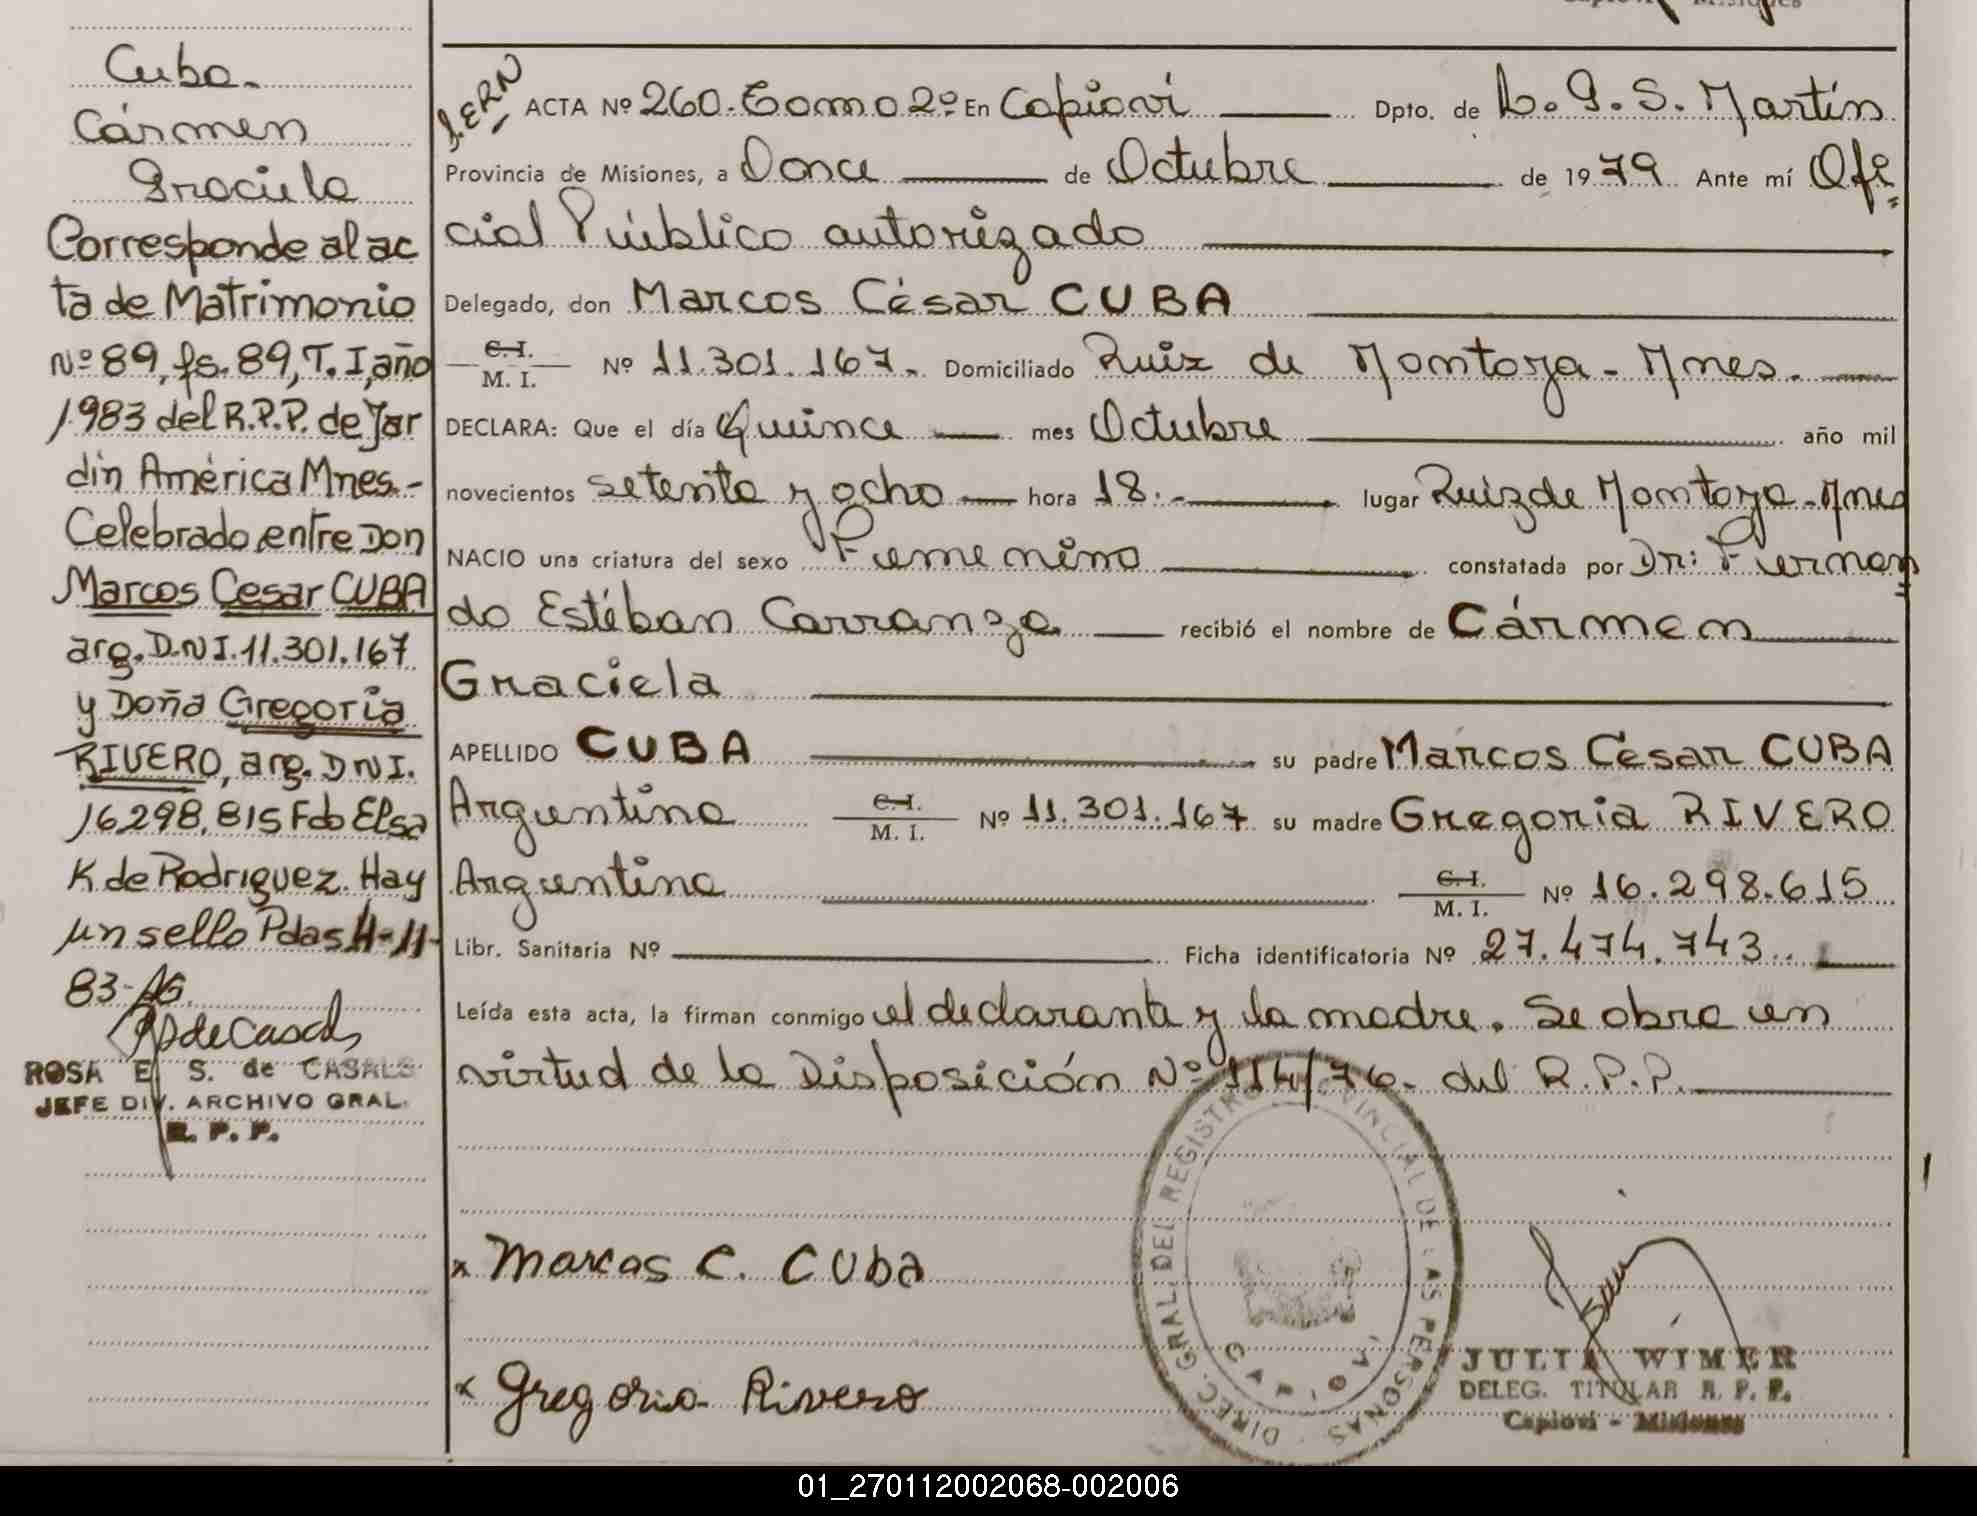 Cuba.
Cármen
Graciela
Corresponde al ac
ta de Matrimonio
Nº 89, fs. 89, T. I, año
1983 del R.P.P. de Jar
din América Mnes.-
Celebrado entre Don
Marcos Cesar CUBA
arg. D.N I. 11.301.167
y Doña Gregoria
RIVERO, arg. D N I.
16298.815 Fdo Elsa
K de Rodriguez. Hay
un sello Pdas 4-11-
83-AG.
ROSA E. S. de CASALS
JEFE DIV. ARCHIVO GRAL.
R. P. P.
ACTA Nº 260. Tomo 2º En Capioví Dpto. de L. G. S. Martín
Provincia de Misiones, a Once de Octubre de 1979 Ante mí Ofi
cial Público autorizado
Delegado, don Marcos César CUBA
C.I.
M. I. Nº 11.301.167. Domiciliado Ruiz de Montoya - Mnes.
DECLARA: Que el día Quince mes Octubre año mil
novecientos setenta y ocho hora 18.- lugar Ruiz de Montoya - Mnes
NACIO una criatura del sexo Femenino constatada por Dr: Fernan
do Estéban Carranza recibió el nombre de Cármen
Graciela
APELLIDO CUBA su padre Marcos César CUBA
Argentino C.I.
M. I. Nº 11.301.167 su madre Gregoria RIVERO
Argentina C.I.
M. I. Nº 16.298.615
Libr. Sanitaria Nº Ficha identificatoria Nº 27.474.743.
Leída esta acta, la firman conmigo el declarante y la madre. Se obra en
virtud de la Disposición Nº 114/76. del R.P.P.
x Marcos C. CUba
x Gregoria Rivero
DIREC. GRAL. DEL REGISTRO PROVINCIAL DE LAS PERSONAS
CAPIOVI
JULIA WIMER
DELEG. TITULAR R. P. P.
Capioví - Misiones
01_270112002068-002006